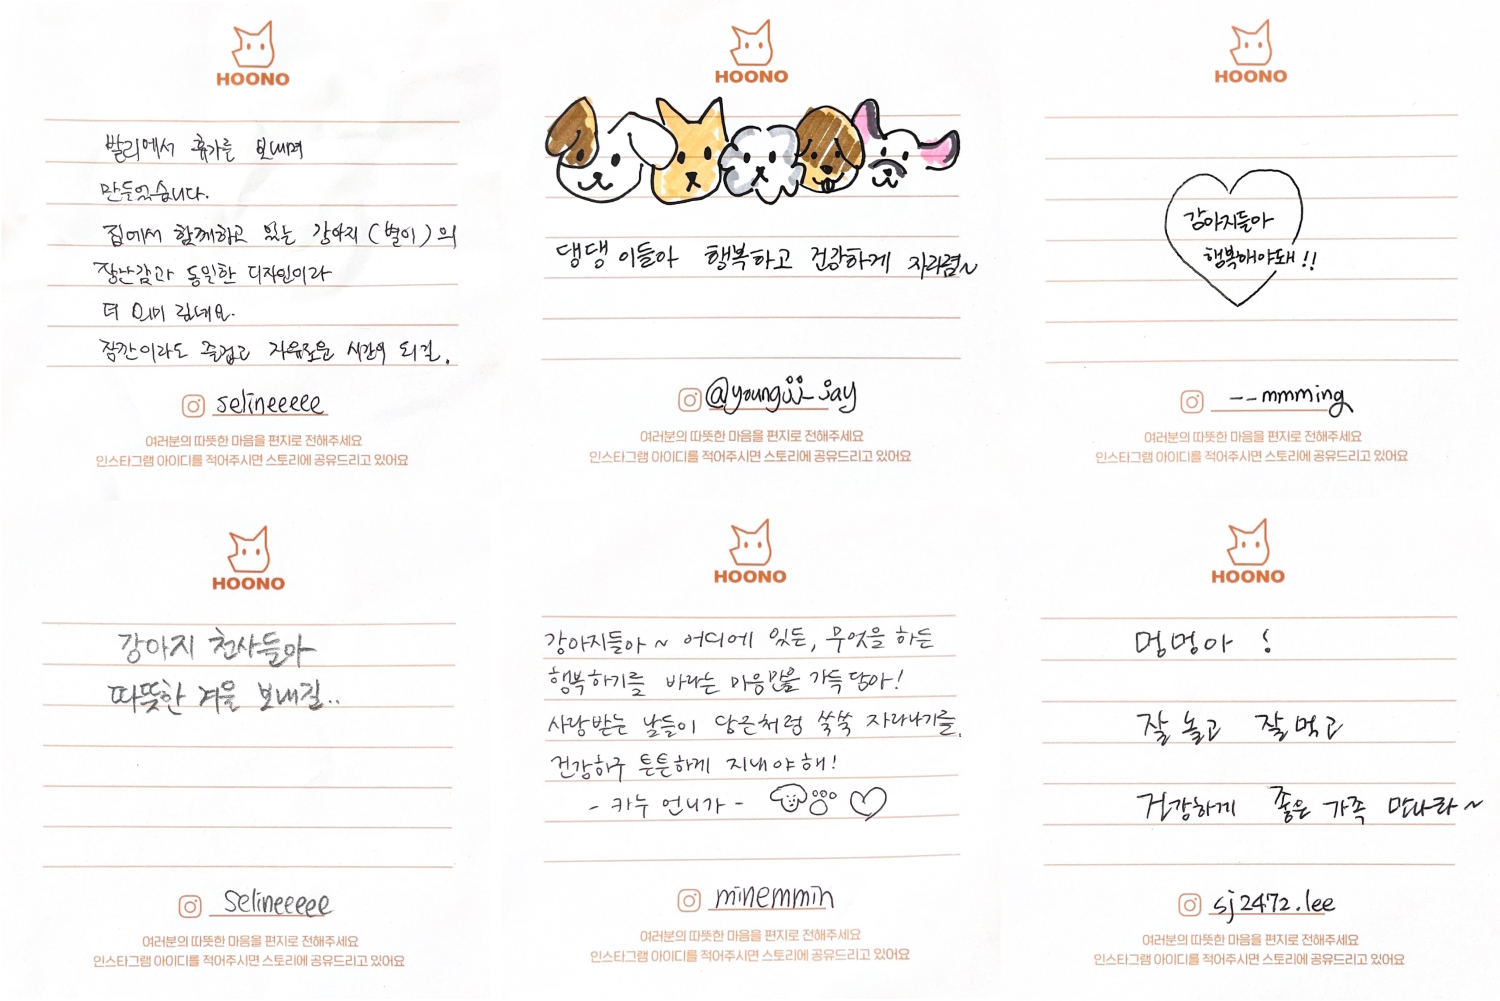 HOONO
발리에서 휴가를 보내며
만들었습니다.
집에서 함께하고 있는 강아지 (별이)의
장난감과 동일한 디자인이라
더 의미 깊네요.
잠깐이라도 즐겁고 자유로운 시간이 되길.
selineeeee
여러분의 따뜻한 마음을 편지로 전해주세요
인스타그램 아이디를 적어주시면 스토리에 공유드리고 있어요
HOONO
댕댕이들아 행복하고 건강하게 자라렴~
@youngjji_jay
여러분의 따뜻한 마음을 편지로 전해주세요
인스타그램 아이디를 적어주시면 스토리에 공유드리고 있어요
HOONO
강아지들아
행복해야돼!!
--mmming
여러분의 따뜻한 마음을 편지로 전해주세요
인스타그램 아이디를 적어주시면 스토리에 공유드리고 있어요
HOONO
강아지 천사들아
따뜻한 겨울 보내길..
selineeeee
여러분의 따뜻한 마음을 편지로 전해주세요
인스타그램 아이디를 적어주시면 스토리에 공유드리고 있어요
HOONO
강아지들아~ 어디에 있든, 무엇을 하든
행복하기를 바라는 마음만을 가득 담아!
사랑받는 날들이 당근처럼 쑥쑥 자라나기를.
건강하구 튼튼하게 지내야해!
- 카누 언니가 -
minemmin
여러분의 따뜻한 마음을 편지로 전해주세요
인스타그램 아이디를 적어주시면 스토리에 공유드리고 있어요
HOONO
멍멍아 !
잘 놀고 잘 먹고
건강하게 좋은 가족 만나라~
sj2472.lee
여러분의 따뜻한 마음을 편지로 전해주세요
인스타그램 아이디를 적어주시면 스토리에 공유드리고 있어요